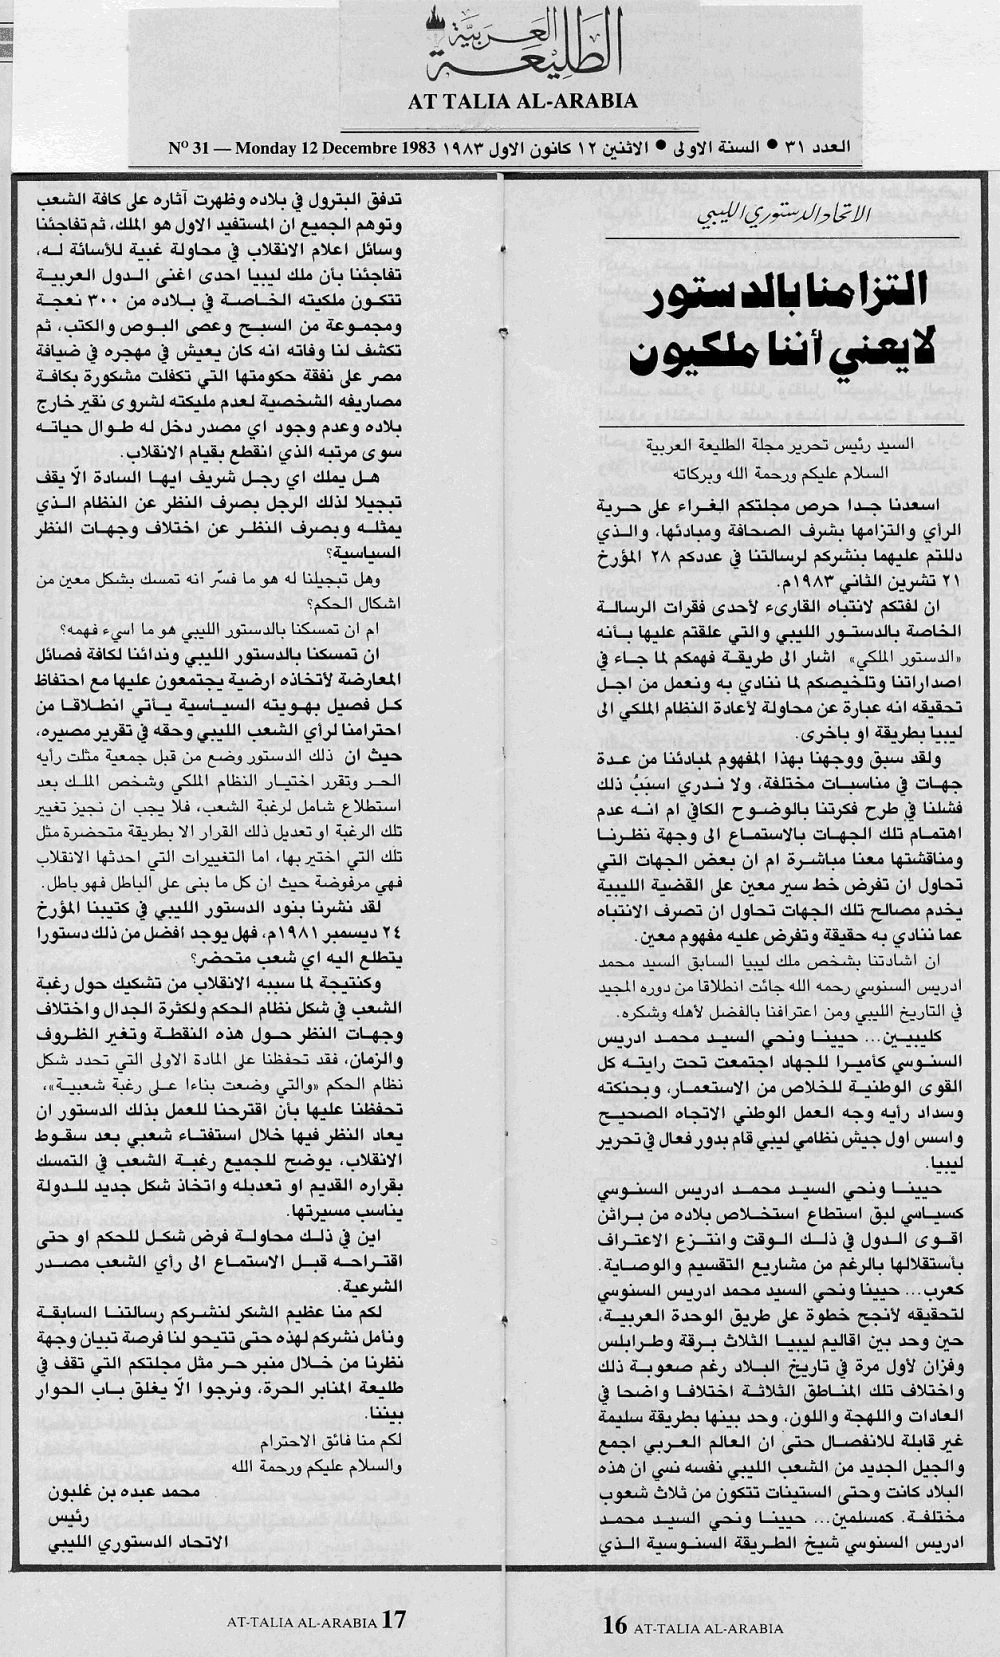 الطليعة العربية
AT TALIA AL-ARABIA
العدد ٣١ • السنة الاولى • الاثنين ١٢ كانون الاول ١٩٨٣ Nº 31 — Monday 12 Decembre 1983
الاتحاد الدستوري الليبي
التزامنا بالدستور
لا يعني أننا ملكيون
السيد رئيس تحرير مجلة الطليعة العربية
السلام عليكم ورحمة الله وبركاته
اسعدنا جدا حرص مجلتكم الغراء على حرية
الرأي والتزامها بشرف الصحافة ومبادئها، والذي
دللتم عليهما بنشركم لرسالتنا في عددكم ٢٨ المؤرخ
٢١ تشرين الثاني ١٩٨٣م.
ان لفتكم لانتباه القارىء لأحدى فقرات الرسالة
الخاصة بالدستور الليبي والتي علقتم عليها بأنه
«الدستور الملكي» اشار الى طريقة فهمكم لما جاء في
اصداراتنا وتلخيصكم لما ننادي به ونعمل من اجل
تحقيقه انه عبارة عن محاولة لأعادة النظام الملكي الى
ليبيا بطريقة او باخرى.
ولقد سبق ووجهنا بهذا المفهوم لمبادئنا من عدة
جهات في مناسبات مختلفة، ولا ندري اسبَبُ ذلك
فشلنا في طرح فكرتنا بالوضوح الكافي ام انه عدم
اهتمام تلك الجهات بالاستماع الى وجهة نظرنا
ومناقشتها معنا مباشرة ام ان بعض الجهات التي
تحاول ان تفرض خط سير معين على القضية الليبية
يخدم مصالح تلك الجهات تحاول ان تصرف الانتباه
عما ننادي به حقيقة وتفرض عليه مفهوم معين.
ان اشادتنا بشخص ملك ليبيا السابق السيد محمد
ادريس السنوسي رحمه الله جائت انطلاقا من دوره المجيد
في التاريخ الليبي ومن اعترافنا بالفضل لأهله وشكره.
كليبيين... حيينا ونحي السيد محمد ادريس
السنوسي كأميرا للجهاد اجتمعت تحت رايته كل
القوى الوطنية للخلاص من الاستعمار، وبحنكته
وسداد رأيه وجه العمل الوطني الاتجاه الصحيح
واسس اول جيش نظامي ليبي قام بدور فعال في تحرير
ليبيا.
حيينا ونحي السيد محمد ادريس السنوسي
كسياسي لبق استطاع استخلاص بلاده من براثن
اقوى الدول في ذلك الوقت وانتزع الاعتراف
بأستقلالها بالرغم من مشاريع التقسيم والوصاية.
كعرب... حيينا ونحي السيد محمد ادريس السنوسي
لتحقيقه لأنجح خطوة على طريق الوحدة العربية،
حين وحد بين اقاليم ليبيا الثلاث برقة وطرابلس
وفزان لأول مرة في تاريخ البلاد رغم صعوبة ذلك
واختلاف تلك المناطق الثلاثة اختلافا واضحا في
العادات واللهجة واللون، وحد بينها بطريقة سليمة
غير قابلة للانفصال حتى ان العالم العربي اجمع
والجيل الجديد من الشعب الليبي نفسه نسي ان هذه
البلاد كانت وحتى الستينات تتكون من ثلاث شعوب
مختلفة. كمسلمين... حيينا ونحي السيد محمد
ادريس السنوسي شيخ الطريقة السنوسية الذي
16 AT-TALIA AL-ARABIA
تدفق البترول في بلاده وظهرت آثاره على كافة الشعب
وتوهم الجميع ان المستفيد الاول هو الملك، ثم تفاجئنا
وسائل اعلام الانقلاب في محاولة غبية للأسائة له،
تفاجئنا بأن ملك ليبيا احدى اغنى الدول العربية
تتكون ملكيته الخاصة في بلاده من ٣٠٠ نعجة
ومجموعة من السبح وعصى البوص والكتب، ثم
تكشف لنا وفاته انه كان يعيش في مهجره في ضيافة
مصر على نفقة حكومتها التي تكفلت مشكورة بكافة
مصاريفه الشخصية لعدم مليكته لشروى نقير خارج
بلاده وعدم وجود اي مصدر دخل له طوال حياته
سوى مرتبه الذي انقطع بقيام الانقلاب.
هل يملك اي رجل شريف ايها السادة الّا يقف
تبجيلا لذلك الرجل بصرف النظر عن النظام الذي
يمثله وبصرف النظر عن اختلاف وجهات النظر
السياسية؟
وهل تبجيلنا له هو ما فسّر انه تمسك بشكل معين من
اشكال الحكم؟
ام ان تمسكنا بالدستور الليبي هو ما اسيء فهمه؟
ان تمسكنا بالدستور الليبي وندائنا لكافة فصائل
المعارضة لأتخاذه ارضية يجتمعون عليها مع احتفاظ
كل فصيل بهويته السياسية يأتي انطلاقا من
احترامنا لرأي الشعب الليبي وحقه في تقرير مصيره،
حيث ان ذلك الدستور وضع من قبل جمعية مثلت رأيه
الحر وتقرر اختيار النظام الملكي وشخص الملك بعد
استطلاع شامل لرغبة الشعب، فلا يجب ان نجيز تغيير
تلك الرغبة او تعديل ذلك القرار الا بطريقة متحضرة مثل
تلك التي اختير بها، اما التغييرات التي احدثها الانقلاب
فهي مرفوضة حيث ان كل ما بنى على الباطل فهو باطل.
لقد نشرنا بنود الدستور الليبي في كتيبنا المؤرخ
٢٤ ديسمبر ١٩٨١م، فهل يوجد افضل من ذلك دستورا
يتطلع اليه اي شعب متحضر؟
وكنتيجة لما سببه الانقلاب من تشكيك حول رغبة
الشعب في شكل نظام الحكم ولكثرة الجدال واختلاف
وجهات النظر حول هذه النقطة وتغير الظروف
والزمان، فقد تحفظنا على المادة الاولى التي تحدد شكل
نظام الحكم «والتي وضعت بناءا على رغبة شعبية»،
تحفظنا عليها بأن اقترحنا للعمل بذلك الدستور ان
يعاد النظر فيها خلال استفتاء شعبي بعد سقوط
الانقلاب، يوضح للجميع رغبة الشعب في التمسك
بقراره القديم او تعديله واتخاذ شكل جديد للدولة
يناسب مسيرتها.
اين في ذلك محاولة فرض شكل للحكم او حتى
اقتراحه قبل الاستماع الى رأي الشعب مصدر
الشرعية.
لكم منا عظيم الشكر لنشركم رسالتنا السابقة
ونأمل نشركم لهذه حتى تتيحو لنا فرصة تبيان وجهة
نظرنا من خلال منبر حر مثل مجلتكم التي تقف في
طليعة المنابر الحرة، ونرجوا الّا يغلق باب الحوار
بيننا.
لكم منا فائق الاحترام
والسلام عليكم ورحمة الله
محمد عبده بن غلبون
رئيس
الاتحاد الدستوري الليبي
AT-TALIA AL-ARABIA 17